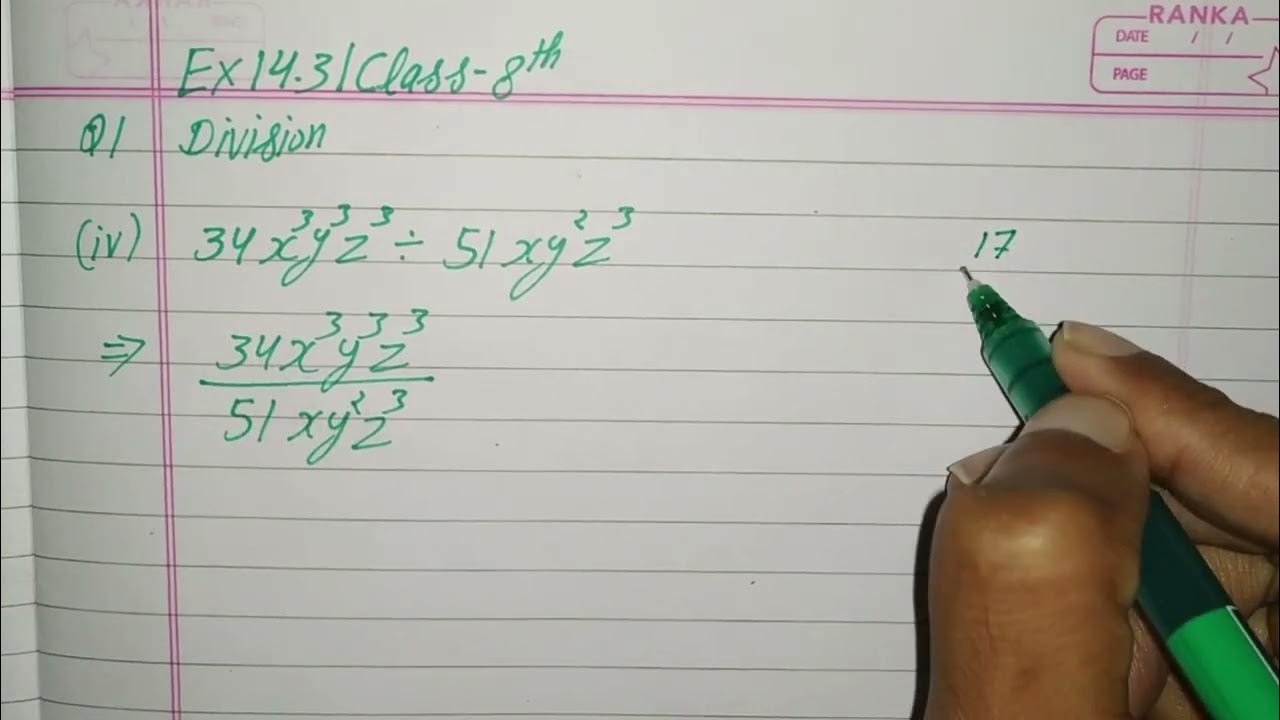 RANKA
DATE / /
PAGE
Ex 14.3 | Class - 8th
Q1 Division
(iv) 34x³y³z³ ÷ 51xy²z³
17
⇒ 34x³y³z³
51xy²z³